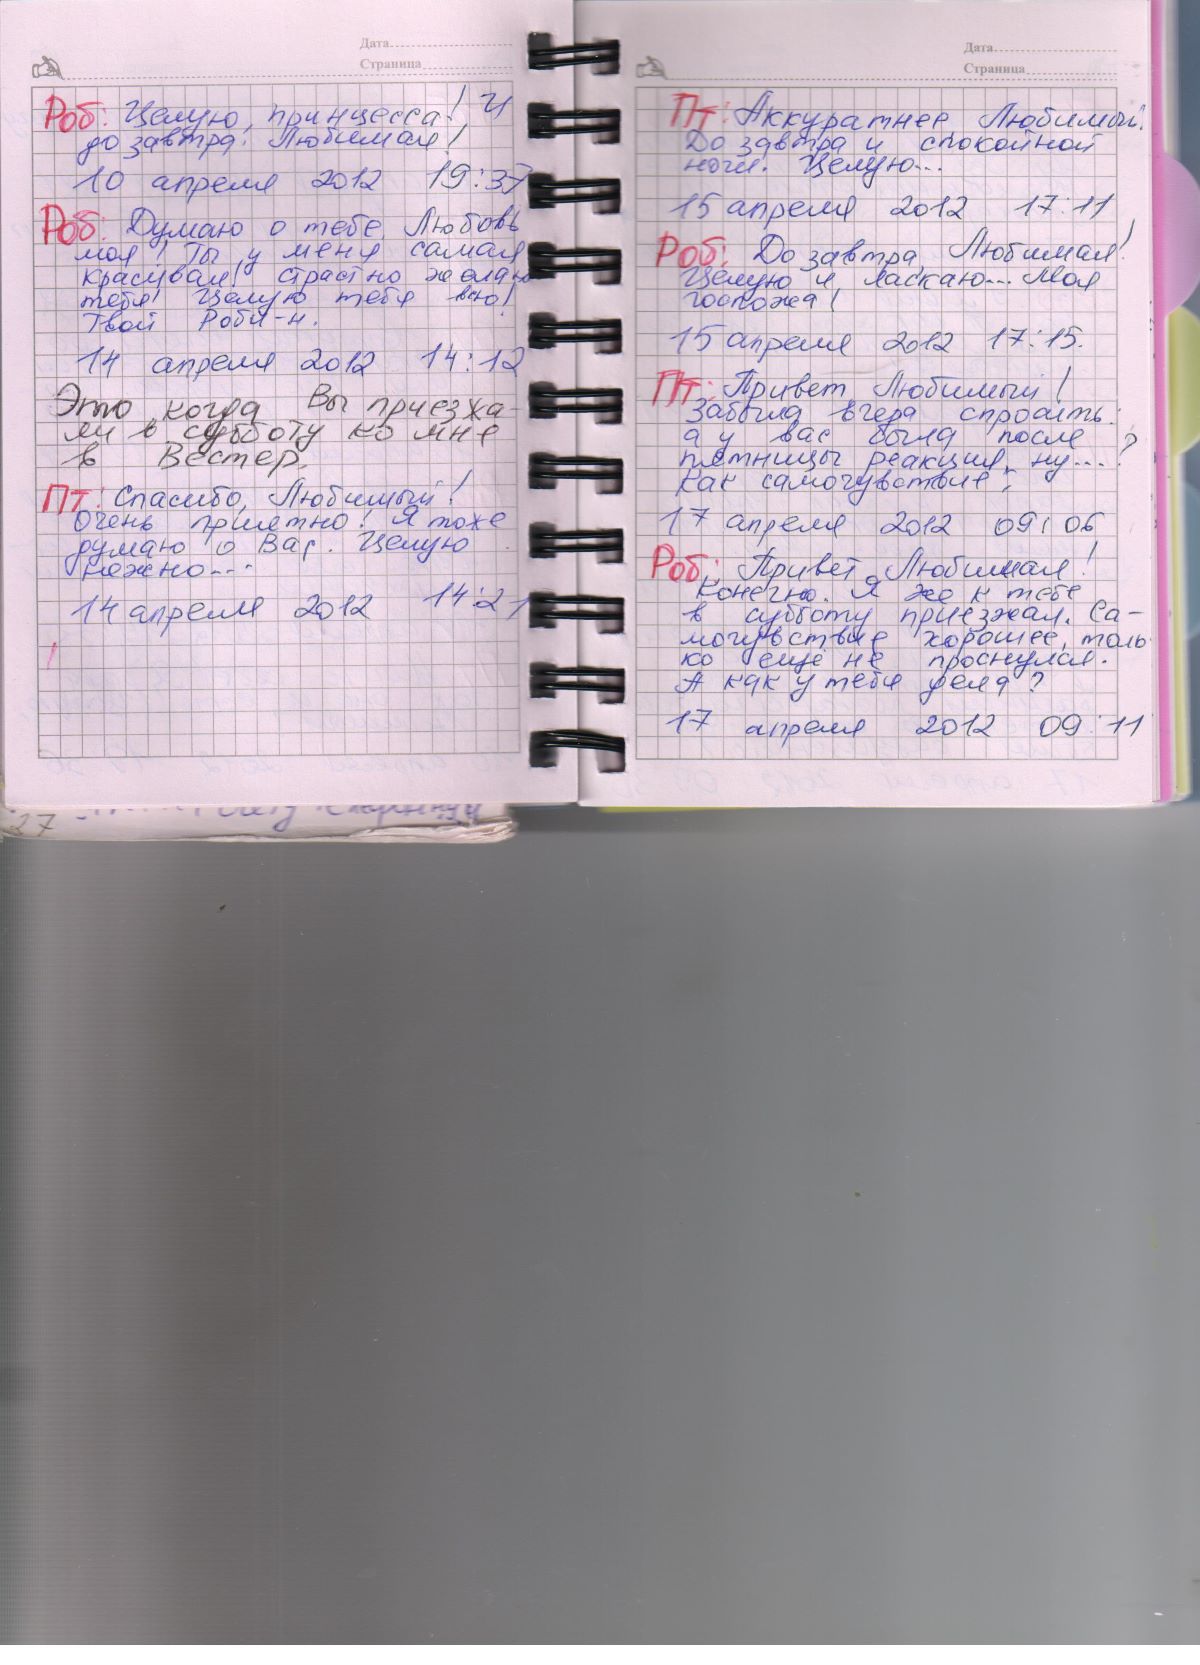 Дата
Страница
Роб: Целую, принцесса! И
до завтра. Любимая!
10 апреля 2012 19:37
Роб: Думаю о тебе, Любовь
моя! Ты у меня самая
красивая! Страстно желаю
тебя! Целую тебя всю!
Твой Роби-н.
14 апреля 2012 14:12
Это когда Вы приезжа-
ли в субботу ко мне
в Вестер.
Пт: Спасибо, Любимый!
Очень приятно! Я тоже
думаю о Вас. Целую
нежно...
14 апреля 2012 14:21
27
Дата
Страница
Пт: Аккуратнее Любимый!
До завтра и спокойной
ночи. Целую...
15 апреля 2012 17:11
Роб: До завтра, Любимая!
Целую и ласкаю... Моя
госпожа!
15 апреля 2012 17:15.
Пт: Привет Любимый!
Забыла вчера спросить:
а у вас была после
пятницы реакция, ну...?
Как самочувствие?
17 апреля 2012 09:06
Роб: Привет, Любимая!
Конечно. Я же к тебе
в субботу приезжал. Са-
мочувствие хорошее, толь
ко ещё не проснулся.
А как у тебя дела?
17 апреля 2012 09:11